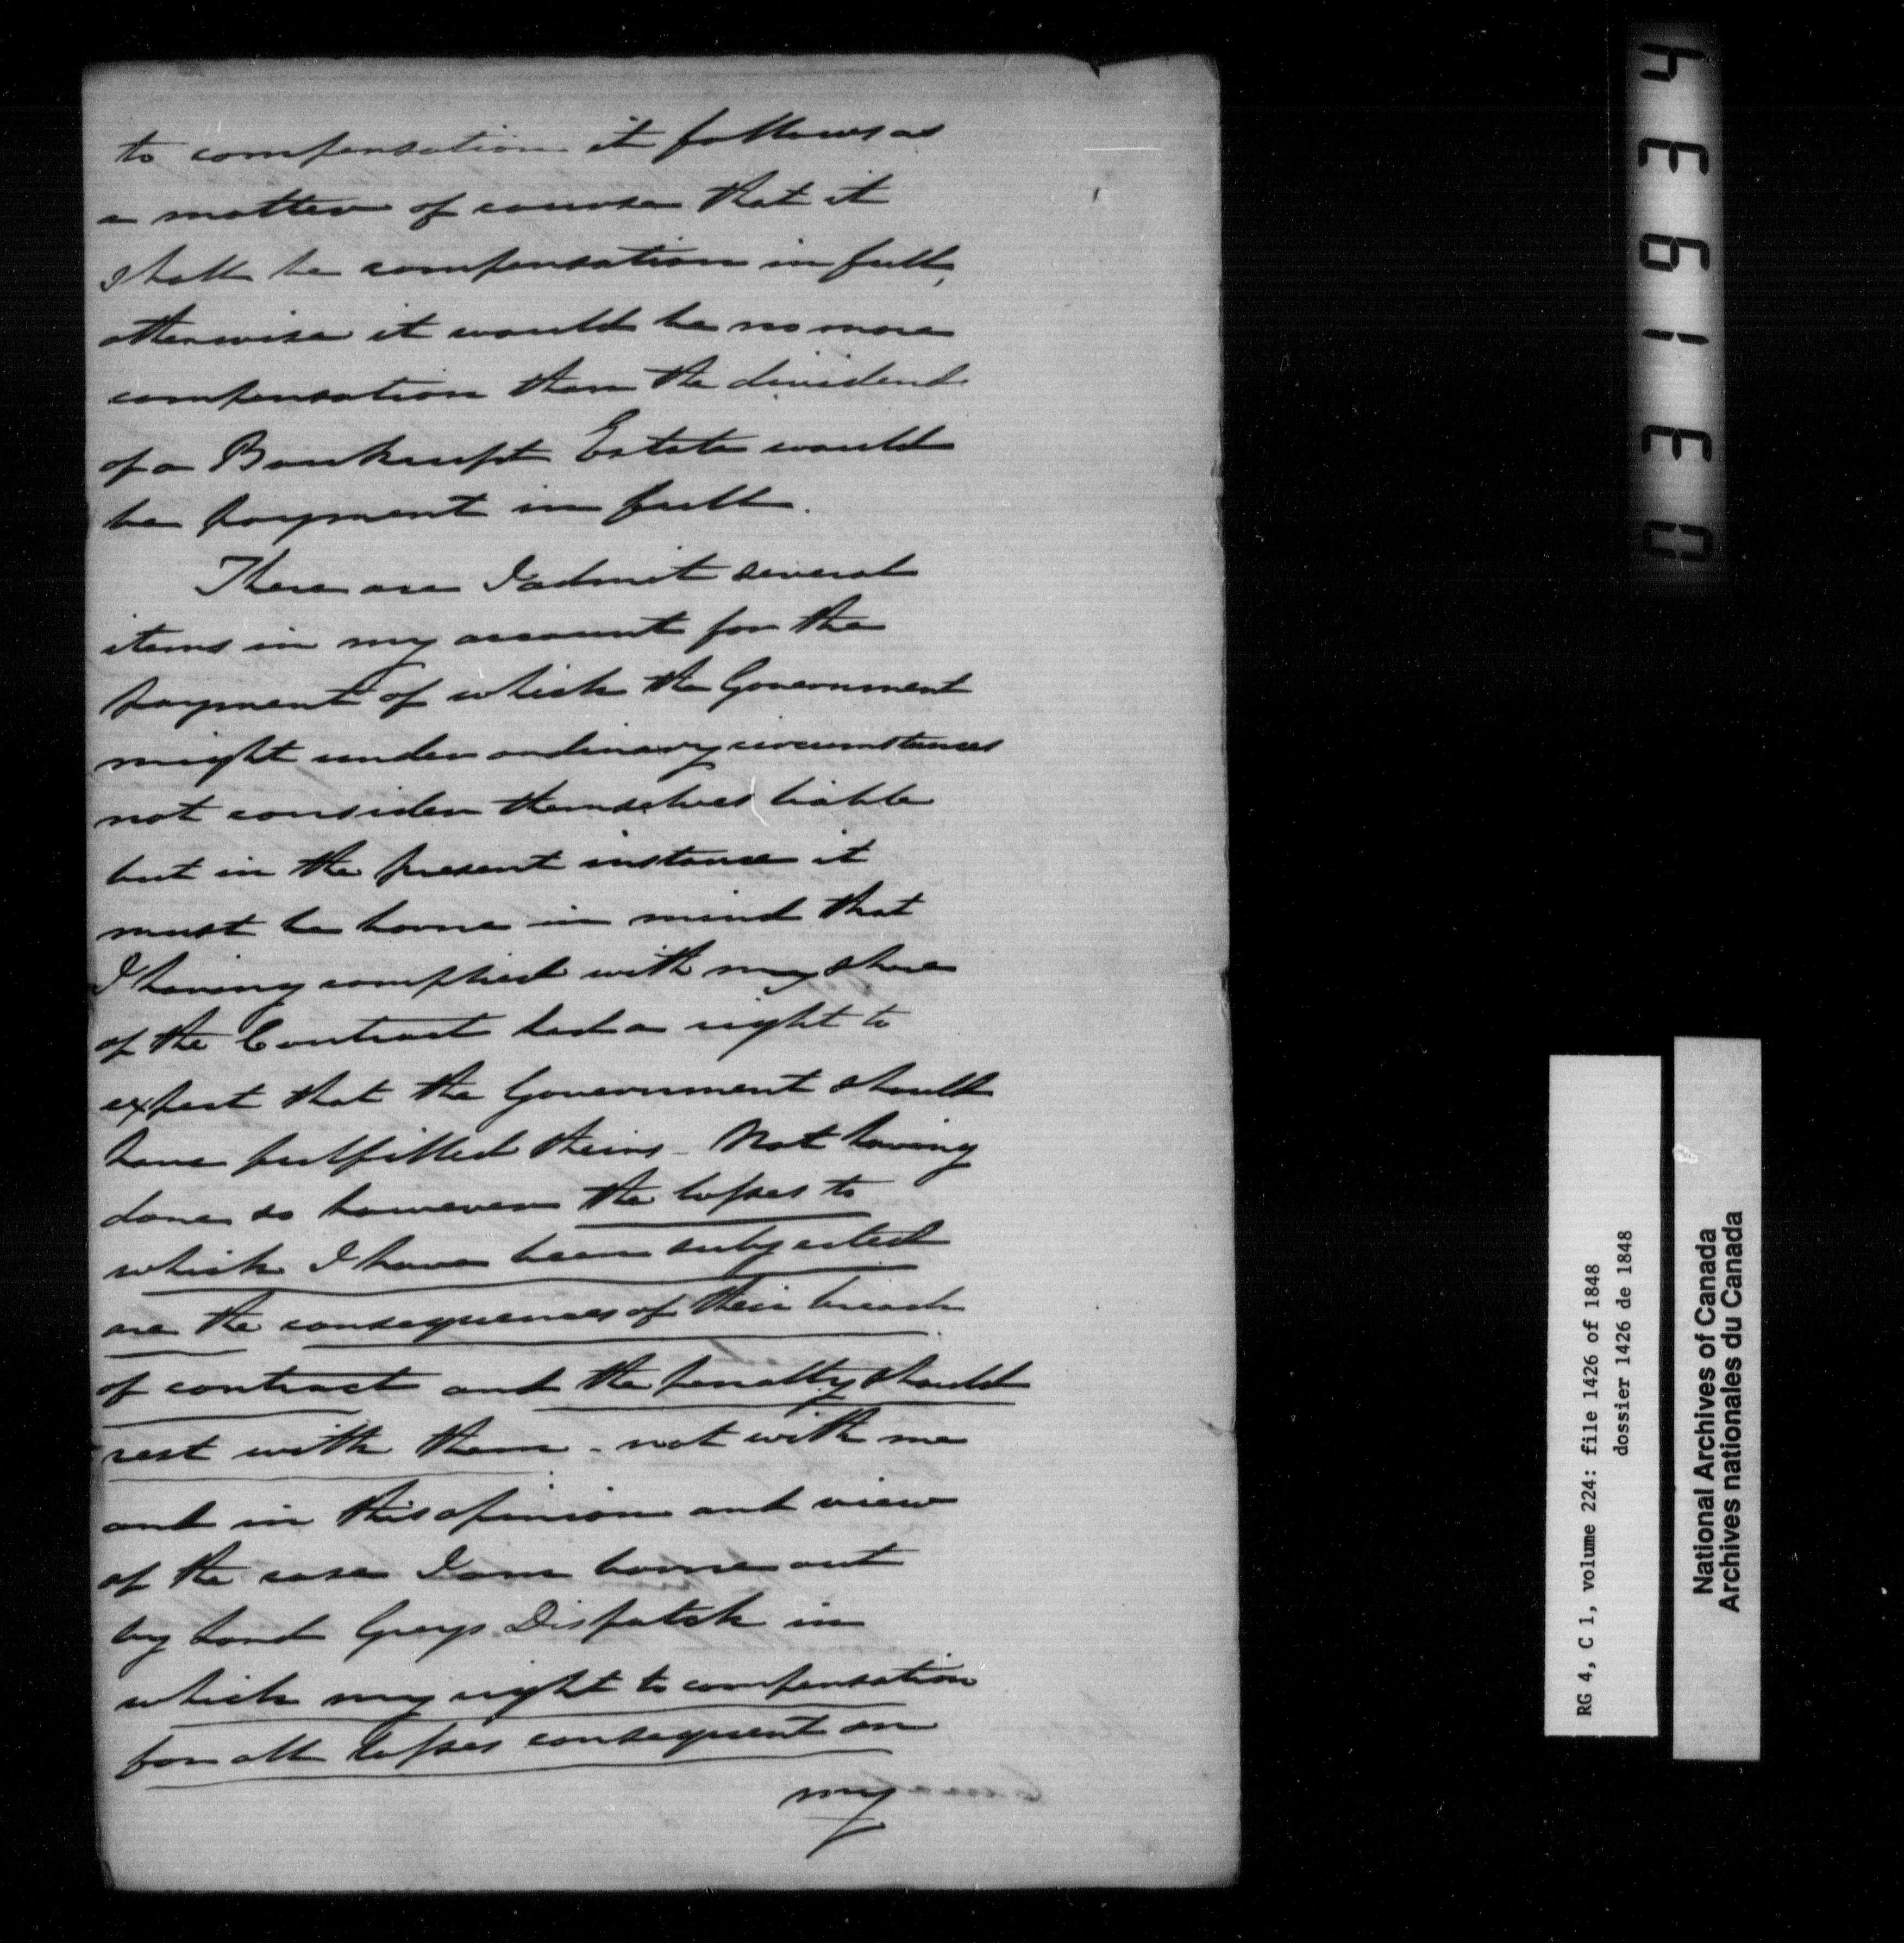 to compensation it follows as
a matter of course that it
shall be compensation in full,
otherwise it would be no more
compensation than the dividend
of a Bankrupt Estate would
be payment in full.
There are I admit several
items in my account for the
payment of which the Government
might under ordinary circumstances
not consider themselves liable
but in the present instance it
must be borne in mind that
I having complied with my share
of the Contract had a right to
expect that the Government should
have fulfilled theirs - Not having
done so however the losses to
which I have been subjected
are the consequences of their breach
of contract and the penalty should
rest with them - not with me
and in this opinion and view
of the case I am borne out
by Lord Greys Dispatch in
which my right to compensation
for all losses consequent on
my
031934
RG 4, C 1, volume 224: file 1426 of 1848
dossier 1426 de 1848
National Archives of Canada
Archives nationales du Canada